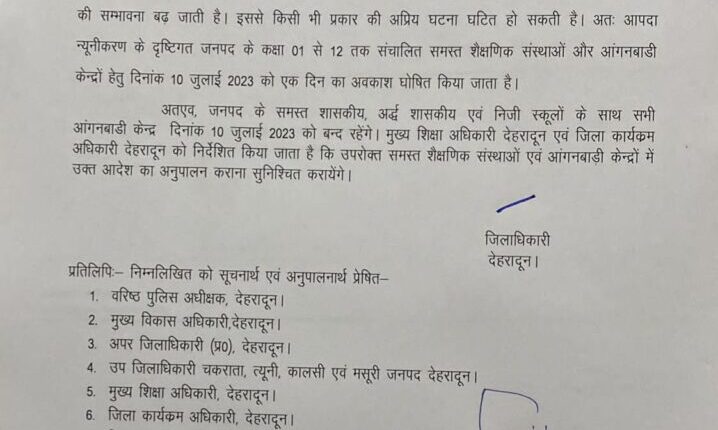 की सम्भावना बढ़ जाती है। इससे किसी भी प्रकार की अप्रिय घटना घटित हो सकती है। अतः आपदा
न्यूनीकरण के दृष्टिगत जनपद के कक्षा 01 से 12 तक संचालित समस्त शैक्षणिक संस्थाओं और आंगनबाडी
केन्द्रों हेतु दिनांक 10 जुलाई 2023 को एक दिन का अवकाश घोषित किया जाता है।
अतएव, जनपद के समस्त शासकीय, अर्द्ध शासकीय एवं निजी स्कूलों के साथ सभी
आंगनबाडी केन्द्र दिनांक 10 जुलाई 2023 को बन्द रहेंगे। मुख्य शिक्षा अधिकारी देहरादून एवं जिला कार्यकम
अधिकारी देहरादून को निर्देशित किया जाता है कि उपरोक्त समस्त शैक्षणिक संस्थाओं एवं आंगनबाड़ी केन्द्रों में
उक्त आदेश का अनुपालन कराना सुनिश्चित करायेंगे।
जिलाधिकारी
देहरादून।
प्रतिलिपिः– निम्नलिखित को सूचनार्थ एवं अनुपालनार्थ प्रेषित–
1. वरिष्ठ पुलिस अधीक्षक, देहरादून।
2. मुख्य विकास अधिकारी,देहरादून।
3. अपर जिलाधिकारी (प्र0), देहरादून।
4. उप जिलाधिकारी चकराता, त्यूनी, कालसी एवं मसूरी जनपद देहरादून।
5. मुख्य शिक्षा अधिकारी, देहरादून।
6. जिला कार्यकम अधिकारी, देहरादून।